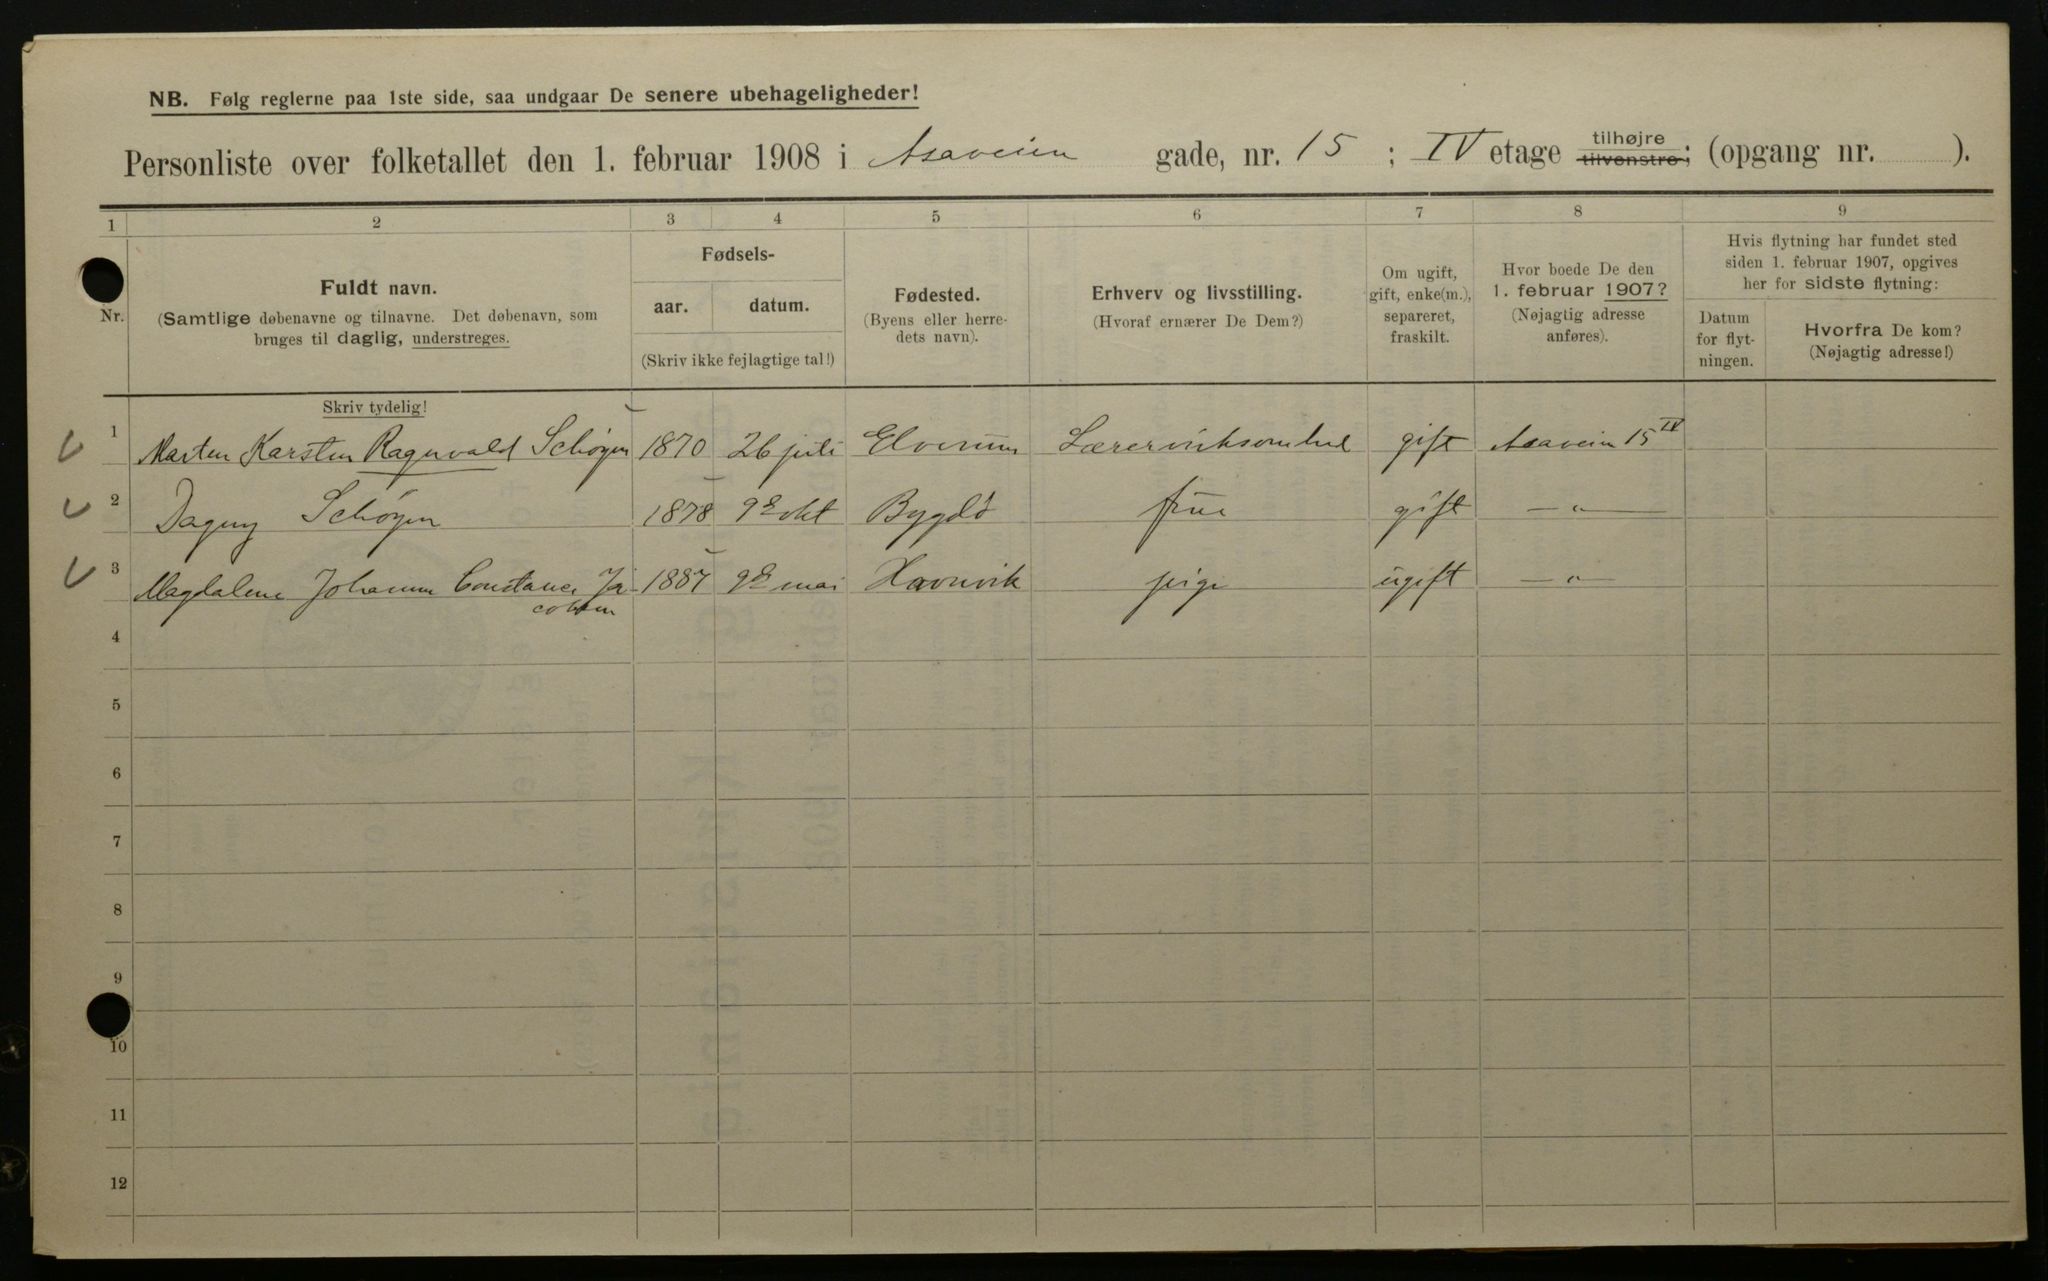 NB. Følg reglerne paa 1ste side, saa undgaar De senere ubehageligheder!
Personliste over folketallet den 1. februar 1908 i Asaveien gade, nr. 15 ; IV etage tilhøjre tilvenstre; (opgang nr. ).
1 2 3 4 5 6 7 8 9
Nr.
Fuldt navn.
(Samtlige døbenavne og tilnavne. Det døbenavn, som
bruges til daglig, understreges.
Skriv tydelig!
Fødsels-
aar. datum.
(Skriv ikke fejlagtige tal!)
Fødested.
(Byens eller herre-
dets navn).
Erhverv og livsstilling.
(Hvoraf ernærer De Dem?)
Om ugift,
gift, enke(m.),
separeret,
fraskilt.
Hvor boede De den
1. februar 1907?
(Nøjagtig adresse
anføres).
Hvis flytning har fundet sted
siden 1. februar 1907, opgives
her for sidste flytning:
Datum
for flyt-
ningen.
Hvorfra De kom?
(Nøjagtig adresse!)
1 Marten Karsten Ragnvald Schøyen 1870 26 juli Elverum Lærervirksomhed gift Asaveien 15 IV
2 Dagny Schøyen 1878 9de okt Bygdø frue gift — " —
3 Magdalene Johanne Constance Ja- 1887 9de mai Havnvik pige ugift — " —
cobsen
4
5
6
7
8
9
10
11
12